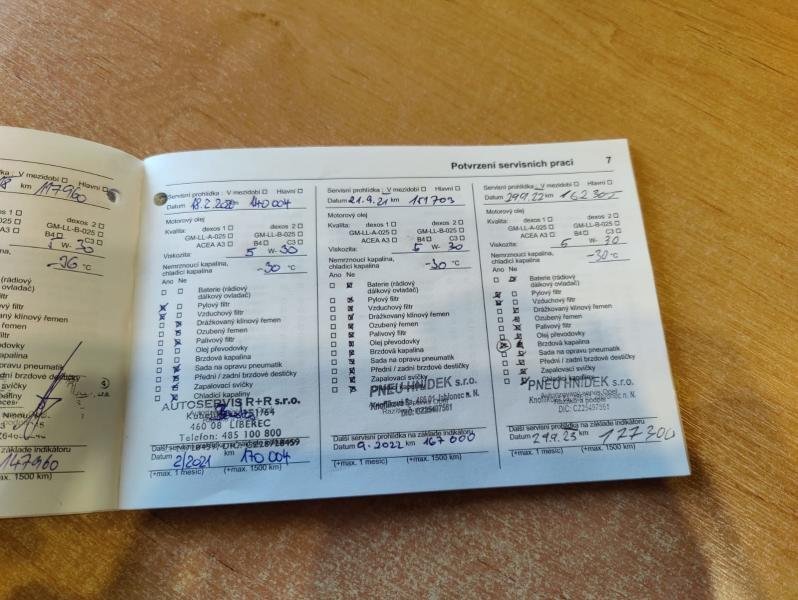 Potvrzení servisních prací 7
117960
dexos 2
B4 C3
W- 30
-36 °C
147960
(+max. 1500 km)
Servisní prohlídka : V mezidobí Hlavní
Datum 18.2.2020 km 140004
Motorový olej
Kvalita: dexos 1 dexos 2
GM-LL-A-025 GM-LL-B-025
ACEA A3 B4 C3
Viskozita: 5 W- 30
Nemrznoucí kapalina,
chladicí kapalina -30 °C
Ano Ne
Baterie (rádiový
dálkový ovladač)
Pylový filtr
Vzduchový filtr
Drážkovaný klínový řemen
Ozubený řemen
Palivový filtr
Olej převodovky
Brzdová kapalina
Sada na opravu pneumatik
Přední / zadní brzdové destičky
Zapalovací svíčky
Chladicí kapaliny
AUTOSERVIS R+R s.r.o.
460 08 LIBEREC
Telefon: 485 100 800
Další servisní prohlídka na základě indikátoru
Datum 2/2021 km 170 004
(+max. 1 měsíc) (+max. 1500 km)
Servisní prohlídka : V mezidobí Hlavní
Datum 21.9.21 km 151703
Motorový olej
Kvalita: dexos 1 dexos 2
GM-LL-A-025 GM-LL-B-025
ACEA A3 B4 C3
Viskozita: 5 W- 30
Nemrznoucí kapalina,
chladicí kapalina -30 °C
Ano Ne
Baterie (rádiový
dálkový ovladač)
Pylový filtr
Vzduchový filtr
Drážkovaný klínový řemen
Ozubený řemen
Palivový filtr
Olej převodovky
Brzdová kapalina
Sada na opravu pneumatik
Přední / zadní brzdové destičky
Zapalovací svíčky
PNEU HNÍDEK s.r.o.
Další servisní prohlídka na základě indikátoru
Datum 9.2022 km 167 000
(+max. 1 měsíc) (+max. 1500 km)
Servisní prohlídka : V mezidobí Hlavní
Datum 29.9.22 km
Motorový olej
Kvalita: dexos 1 dexos 2
GM-LL-A-025 GM-LL-B-025
ACEA A3 B4 C3
Viskozita: 5 W- 30
Nemrznoucí kapalina,
chladicí kapalina -30 °C
Ano Ne
Baterie (rádiový
dálkový ovladač)
Pylový filtr
Vzduchový filtr
Drážkovaný klínový řemen
Ozubený řemen
Palivový filtr
Olej převodovky
Brzdová kapalina
Sada na opravu pneumatik
Přední / zadní brzdové destičky
Zapalovací svíčky
PNEU HNÍDEK s.r.o.
Další servisní prohlídka na základě indikátoru
Datum 29.9.23 km 177300
(+max. 1 měsíc) (+max. 1500 km)